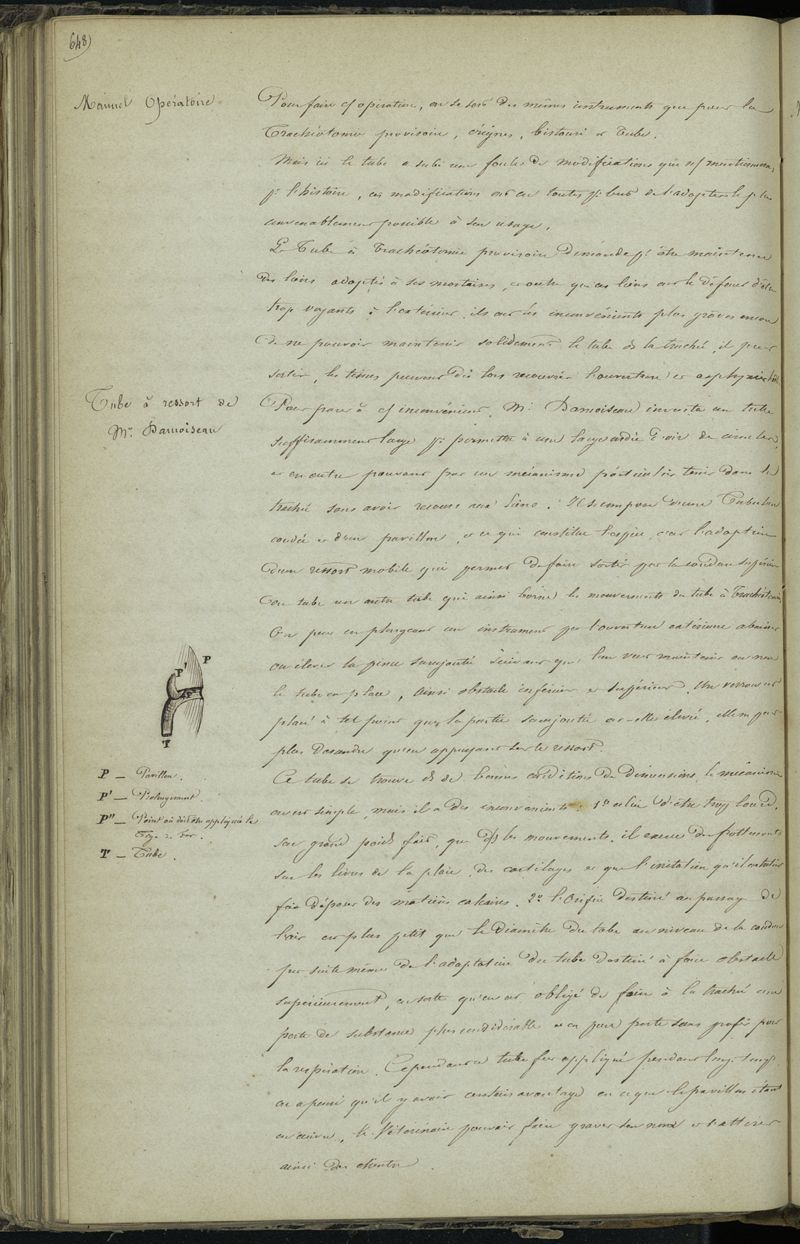 648)
Manuel Opératoire
Pour faire cs opération, on se sert des mêmes instruments que pour la
Trachéotomie provisoire, érignes, bistouri et Tube.
Mais ici le tube a subi une foules de modifications que ns mentionnons
pr l'histoire, ces modifications ont eu toutes pr but de l'adapter le plus
convenablement possible à son usage.
Le Tube à Trachéotomie provisoire demande pr être maintenu
des liens adaptés à ses mortaises, et outre que ces liens ont le défaut d'être
trop voyants à l'extérieur, ils ont des inconvénients plus graves encore
de ne pouvoir maintenir solidement le tube ds la traché, il peut
sortir, les tissus peuvent dès lors recouvrir l'ouverture et asphyxie
Tube à ressort de
Mr. Damoiseau
Pour parer à cs inconvénient, Mr. Damoiseau inventa un tube
suffisamment large pr permettre à une large ordée d'air de circuler,
et en outre pouvant par un mécanisme particulier tenir dans la
traché sans avoir recours aux liens. Il se compose d'une Tubulure
coudée et d'un pavillon, et ce qui constitue l'espèce, c'est l'adaption
d'un ressort mobile qui permet de faire sortir par le coude supérieur
du tube un autre tube qui ainsi borne les mouvements du tube à Trachéotomie
On peut en plongeant un instrument par l'ouverture extérieure abaisser
ou élever la pièce surajouté suivant que l'on veut maintenir ou non
le tube en place, ainsi obstacle inférieur et supérieur. Un verrou est
placé à tel point que la partie surajoutée est-elle élevée, elle ne peut
plus descendre qu'en appuyant sur le ressort.
P P' T
P — Pavillon.
P' — Prolongement.
P" — Point où doit être appliquée la
T — Tube.
Ce tube se trouve ds de bonnes conditions de dimensions, le mécanisme
en est simple, mais il a des inconvénients: 1o celui d'être trop lourd.
son grand poids fait, que ds les mouvements, il exerce des frottements
sur les lèvres de la plaie, des cartilages et que l'irritation qu'il entretient
fait déposer des matières calcaires. 2o l'Orifice destiné au passage de
l'air est plus petit que le diamètre du tube au niveau de la coudure
par suite même de l'adaptation du tube destiné à faire obstacle
supérieurement, en sorte qu'on est obligé de faire à la traché une
perte de substance plus considérable et en pure perte sans profit pour
la respiration. Cependant ce tube fut appliqué pendant longtemps
on a pensé qu'il y avoir certain avantage en ce que le pavillon étant
en cuivre, le Vétérinaire pouvait faire graver son nom et s'attirer
ainsi des clients.